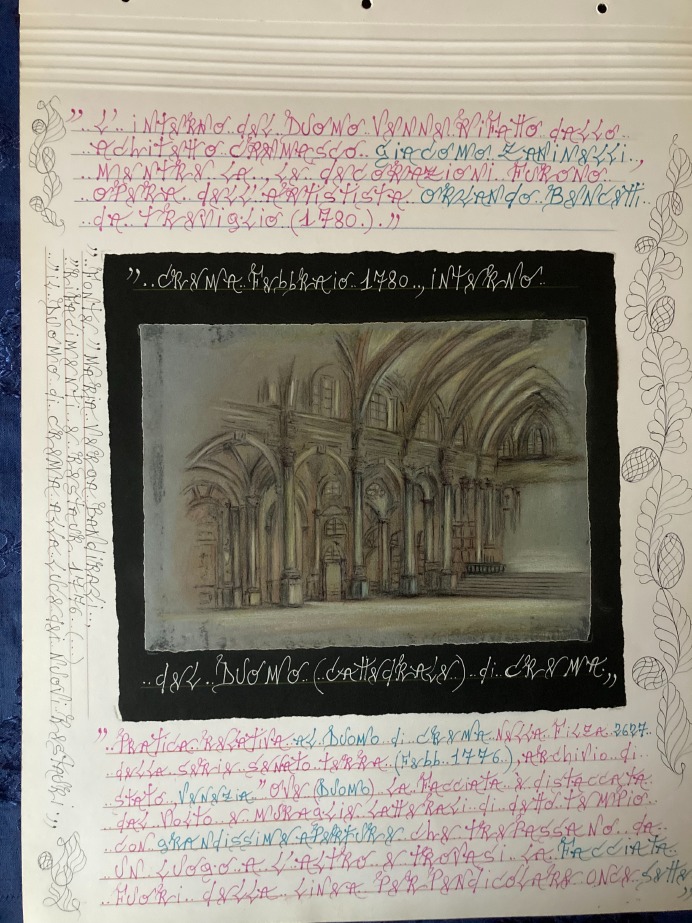 "L'..iNtERNO..dEL..DUOMO..VENNE.RiFAttO..dALLO..
AChitEttO..CREMASCO..GiACOMO..ZANiNELLi..,
MENtRE..LA..,LE..dECORAZiONi..FURONO..
OPERA..dELL'ARtiStiStA..ORLANdO..BENCEtti..
dA..tREViGLiO..(1780.).."
"..CREMA..FEbbRAiO..1780..,iNtERNO..
..dEL..DUOMO..(CAttEdRALE)..di..CREMA,,
"FONtE,"MARiA..VERGA..BANdiRALi..,
"RiFACiMENti..E..REStAURi..1776..(...)
"iL..DUOMO..di..CREMA..ALLA..LUCE..dEi..NUOVi..REStAURi..,,
"PRAtiCA..RELAtiVA..AL..DUOMO..di..CREMA..NELLA..FiLZA..2627..
dELLA..SERiE..SENAtO..tERRA..(FEbb..1776.),ARChiViO..di..
StAtO..VENEZiA.."OVE(DUOMO)..LA..FACCiAtA..E..diStACCAtA..
dAL..VOLtO..E..MURAGLiE..LAttERALi..di..dEttO..tEMPiO..
CON..GRANdiSSiME..APERtURE..ChE..tREPASSANO..dA..
UN..LUOGO..A..L'ALtRO..E..tROVASi..LA..FACCiAtA..
FUORi..dELLA..LiNEA..PERPENdiCOLARE..ONCE..SEttE..,,